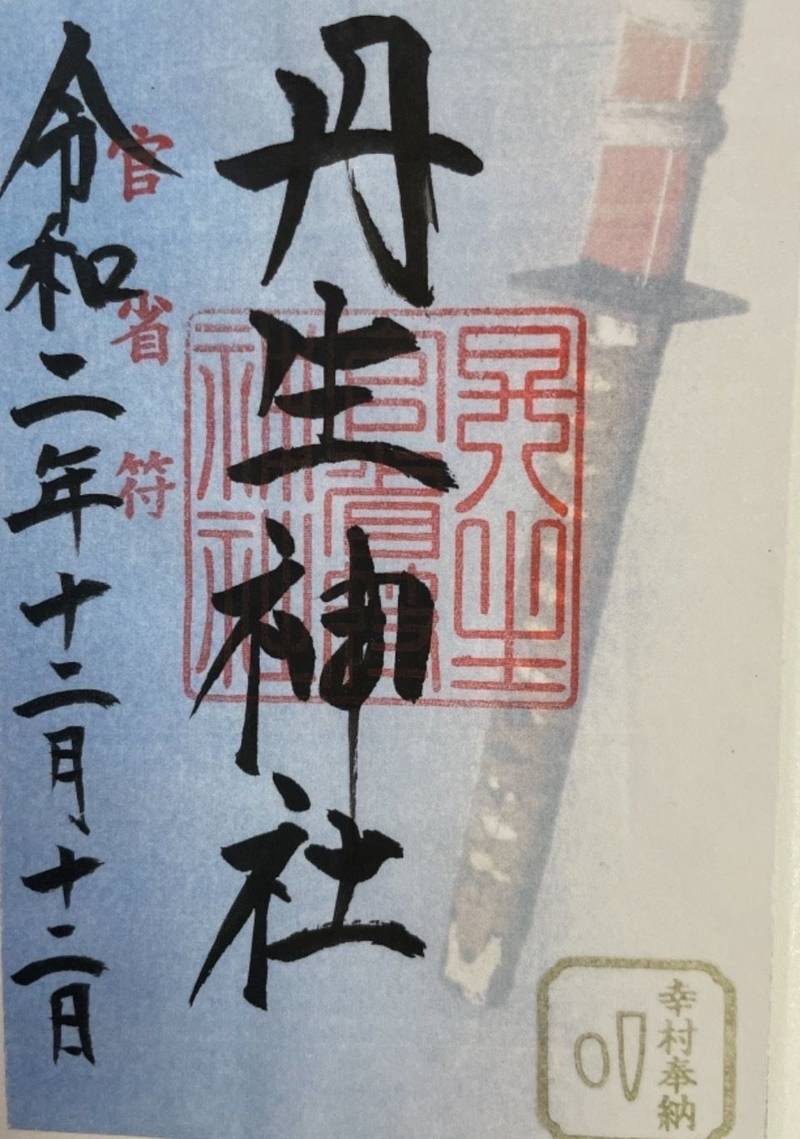 丹生神社
官省符
令和二年十二月十二日
丹生
官省符
神社
幸村奉納